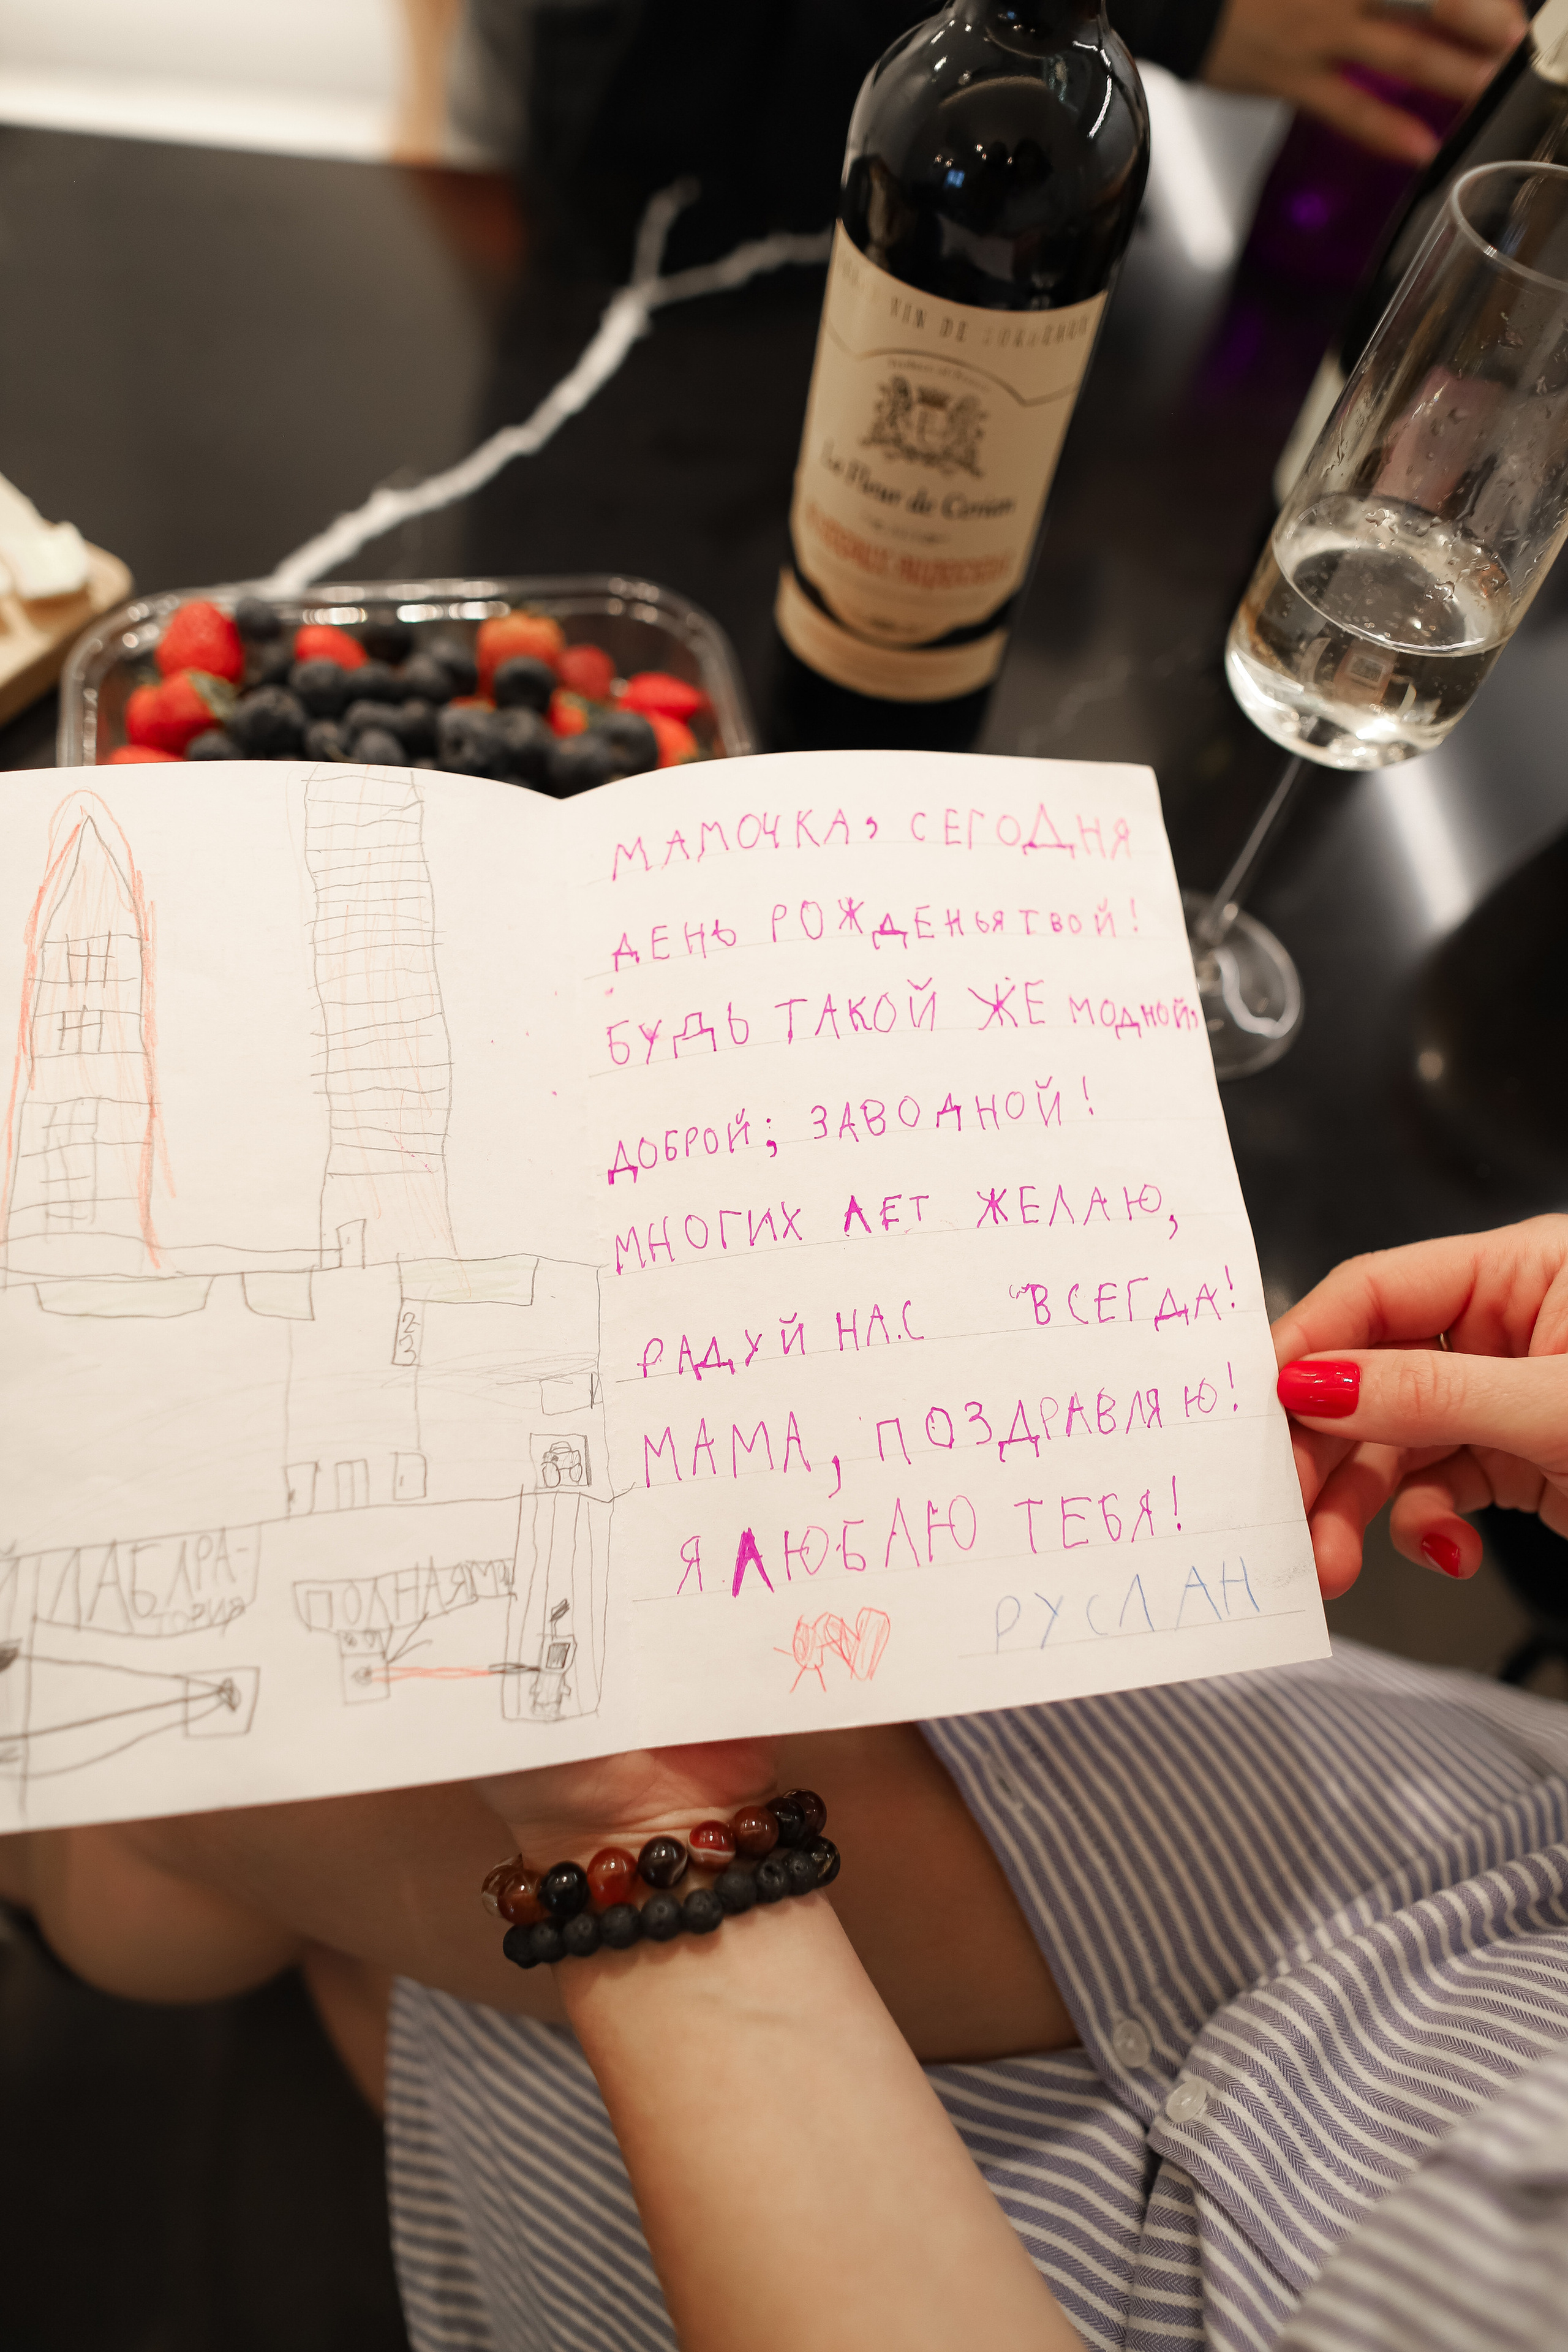 VIN DE
Le Fleur de
МАМОЧКА, СЕГОДНЯ
ДЕНЬ РОЖДЕНЬЯ ТВОЙ!
БУДЬ ТАКОЙ ЖЕ МОДНОЙ,
ДОБРОЙ; ЗАВОДНОЙ!
МНОГИХ ЛЕТ ЖЕЛАЮ,
РАДУЙ НАС ВСЕГДА!
МАМА, ПОЗДРАВЛЯЮ!
Я ЛЮБЛЮ ТЕБЯ!
РУСЛАН
2
3
ЛАБЛРА-
ТОРИЯ